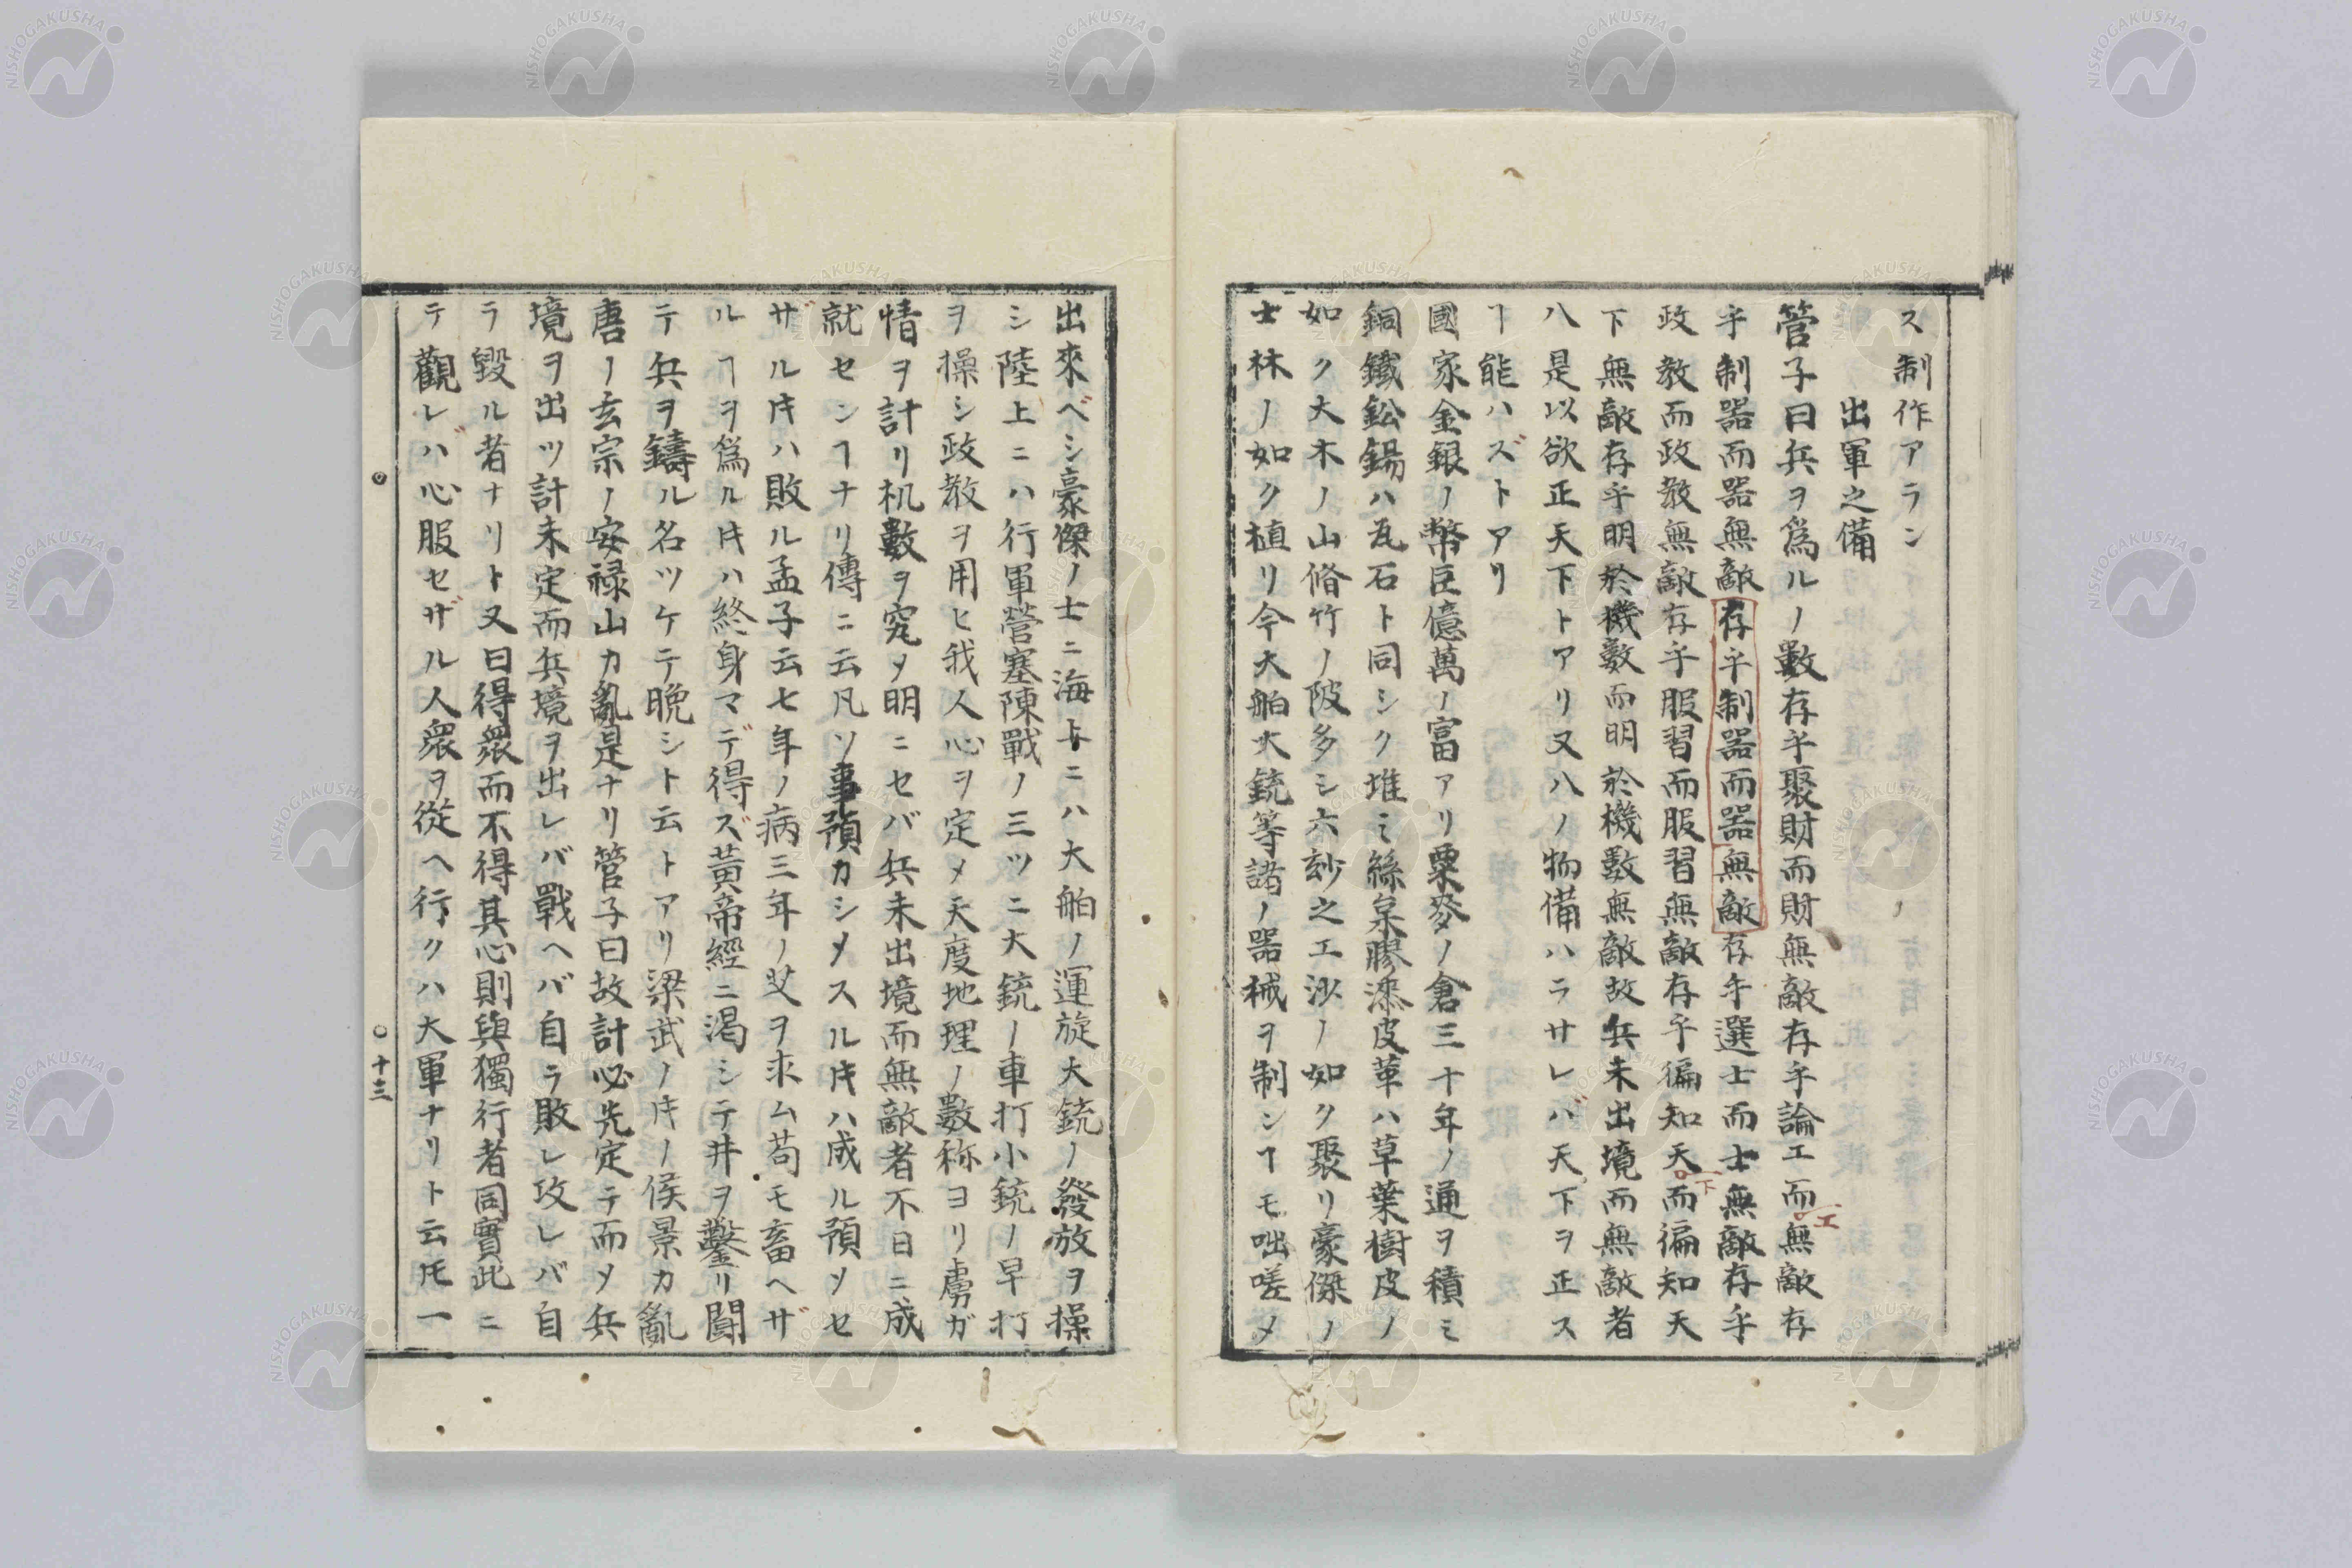 ス制作アラン
出軍之備
管子曰兵ヲ爲ルノ數存乎聚財而財無敵存乎論工而無敵存
工
乎制器而器無敵存乎制器而器無敵存乎選士而士無敵存乎
政教而政敎無敵存乎服習而服習無敵存乎徧知天而徧知天
下
下無敵存乎明於機數而明於機數無敵故兵未出境而無敵者
八是以欲正天下トアリ又八ノ物備ハラサレバ天下ヲ正ス
ヿ能ハズトアリ
國家金銀ノ幣臣億萬ノ富アリ粟麥ノ倉三十年ノ通ヲ積ミ
銅鐵鈆錫ハ瓦石ト同シク堆ミ絲枲膠漆皮革ハ草葉樹皮ノ
如ク大木ノ山脩竹ノ陂多シ六玅之工沙ノ如ク聚リ豪傑ノ
士林ノ如ク植リ今大舶大銃等諸ノ器械ヲ制シヿモ咄嗟メ
出來ベシ豪傑ノ士ニ海上ニハ大舶ノ運旋大銃ノ發放ヲ操
シ陸上ニハ行軍營塞陳戰ノ三ツニ大銃ノ車打小銃ノ早打
ヲ操シ政教ヲ用ヒ我人心ヲ定メ天度地理ノ數称ヨリ虜ガ
情ヲ計リ机數ヲ究メ明ニセバ兵未出境而無敵者不日ニ成
就センヿナリ傳ニ云凡ソ事預カシメスル片ハ成ル預ソセ
ザル片ハ敗ル孟子云七年ノ病三年ノ艾ヲ求ム苟モ畜ヘザ
ルヿヲ爲ル片ハ終身マデ得ズ黃帝經ニ渴シテ井ヲ鑿リ鬪
テ兵ヲ鑄ル名ツケテ晩シト云トアリ梁武ノ片ノ侯景カ亂
唐ノ玄宗ノ安禄山カ亂是ナリ管子曰故計必先定テ而メ兵
境ヲ出ツ計未定而兵境ヲ出レバ戰ヘバ自ラ敗レ攻レバ自
ラ毀ル者ナリト又曰得衆而不得其心則與獨行者同實此ニ
テ觀レバ心服セザル人衆ヲ從ヘ行クハ大軍ナリト云𪜈一
十三